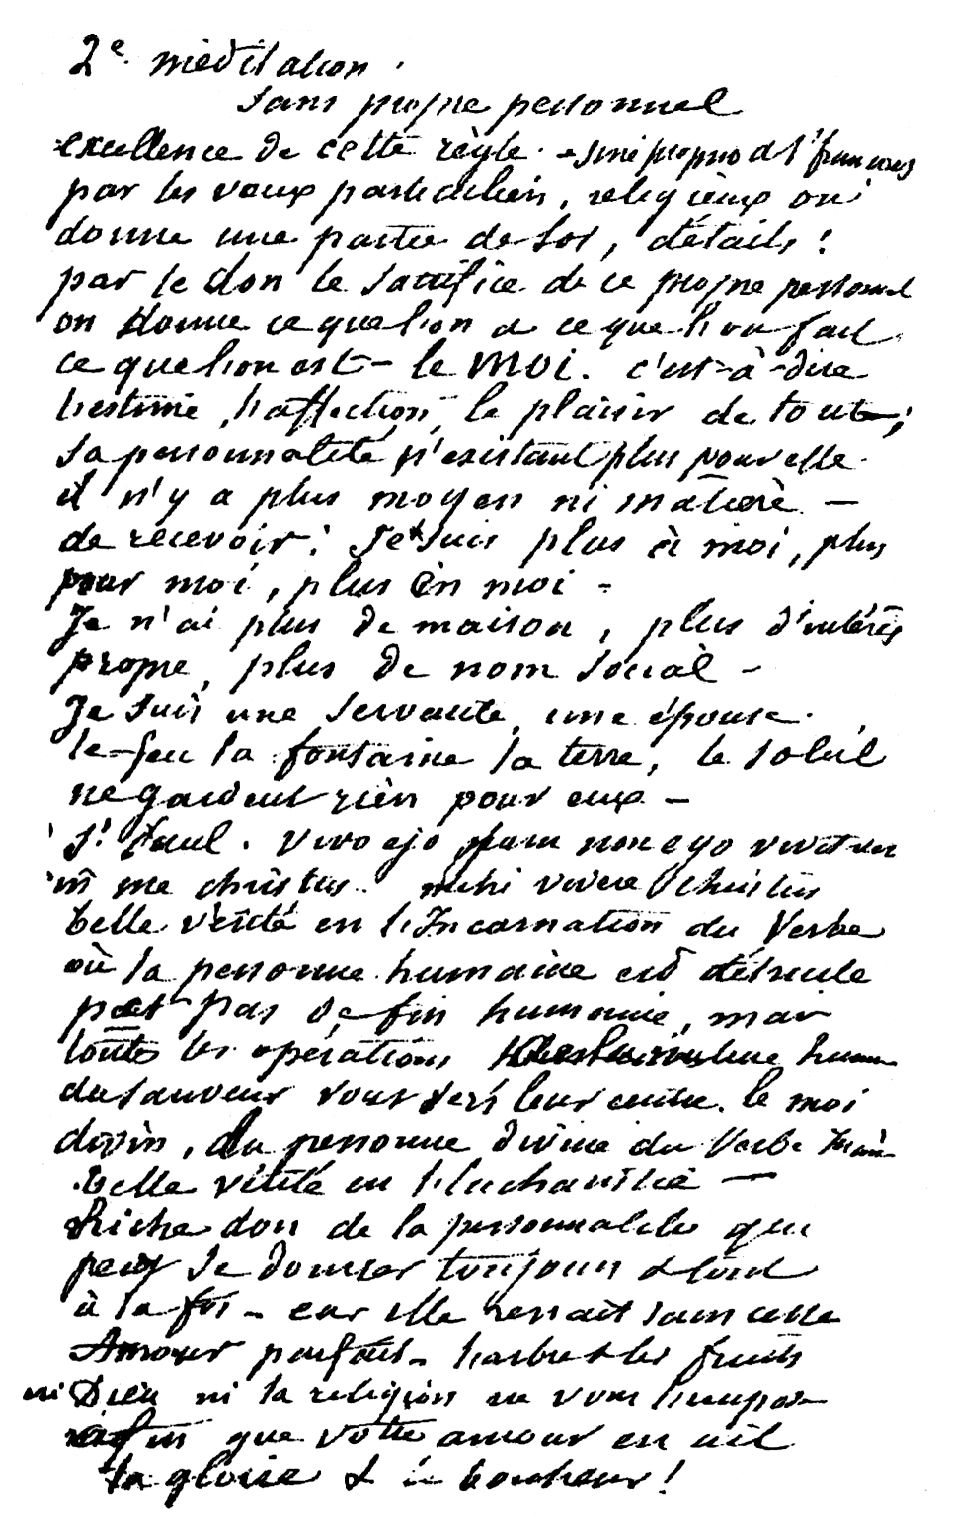 2e méditation.
Sans propre personnel
excellence de cette règle. - sine proprio de St françois
par les vœux particuliers, religieux on
donne une partie de soi, détails !
par le don le sacrifice de ce propre personnel
on donne ce que l'on a ce que l'on fait
ce que l'on est - le MOI. c'est-à-dire
l'estime, l'affection, le plaisir de tout ;
sa personnalité n'existant plus pour elle
il n'y a plus moyen ni matière -
de recevoir : Je suis plus à moi, plus
pour moi, plus en moi -
Je n'ai plus de maison, plus d'intérêts
propre, plus de nom social -
Je suis une servante, une épouse.
le feu la fontaine la terre, le soleil
ne gardent rien pour eux -
St Paul. Vivo ego jam non ego vivit vero
in me christus. mihi vivere Christus
belle vérité en l'Incarnation du Verbe
où la personne humaine est détruite
pas de fin humaine, mais
toutes les opérations humaine
du sauveur vont vers leur centre. le moi
divin, la personne divine du Verbe
belle vérité en l'Eucharistie -
Riche don de la personnalité qui
peut se donner toujours & tout
à la fois - car elle renaît sans cesse
Amour parfait - l'arbre & les fruits
ni Dieu ni la religion ne vous l'impose
afin que votre amour en ait
la gloire & le bonheur !